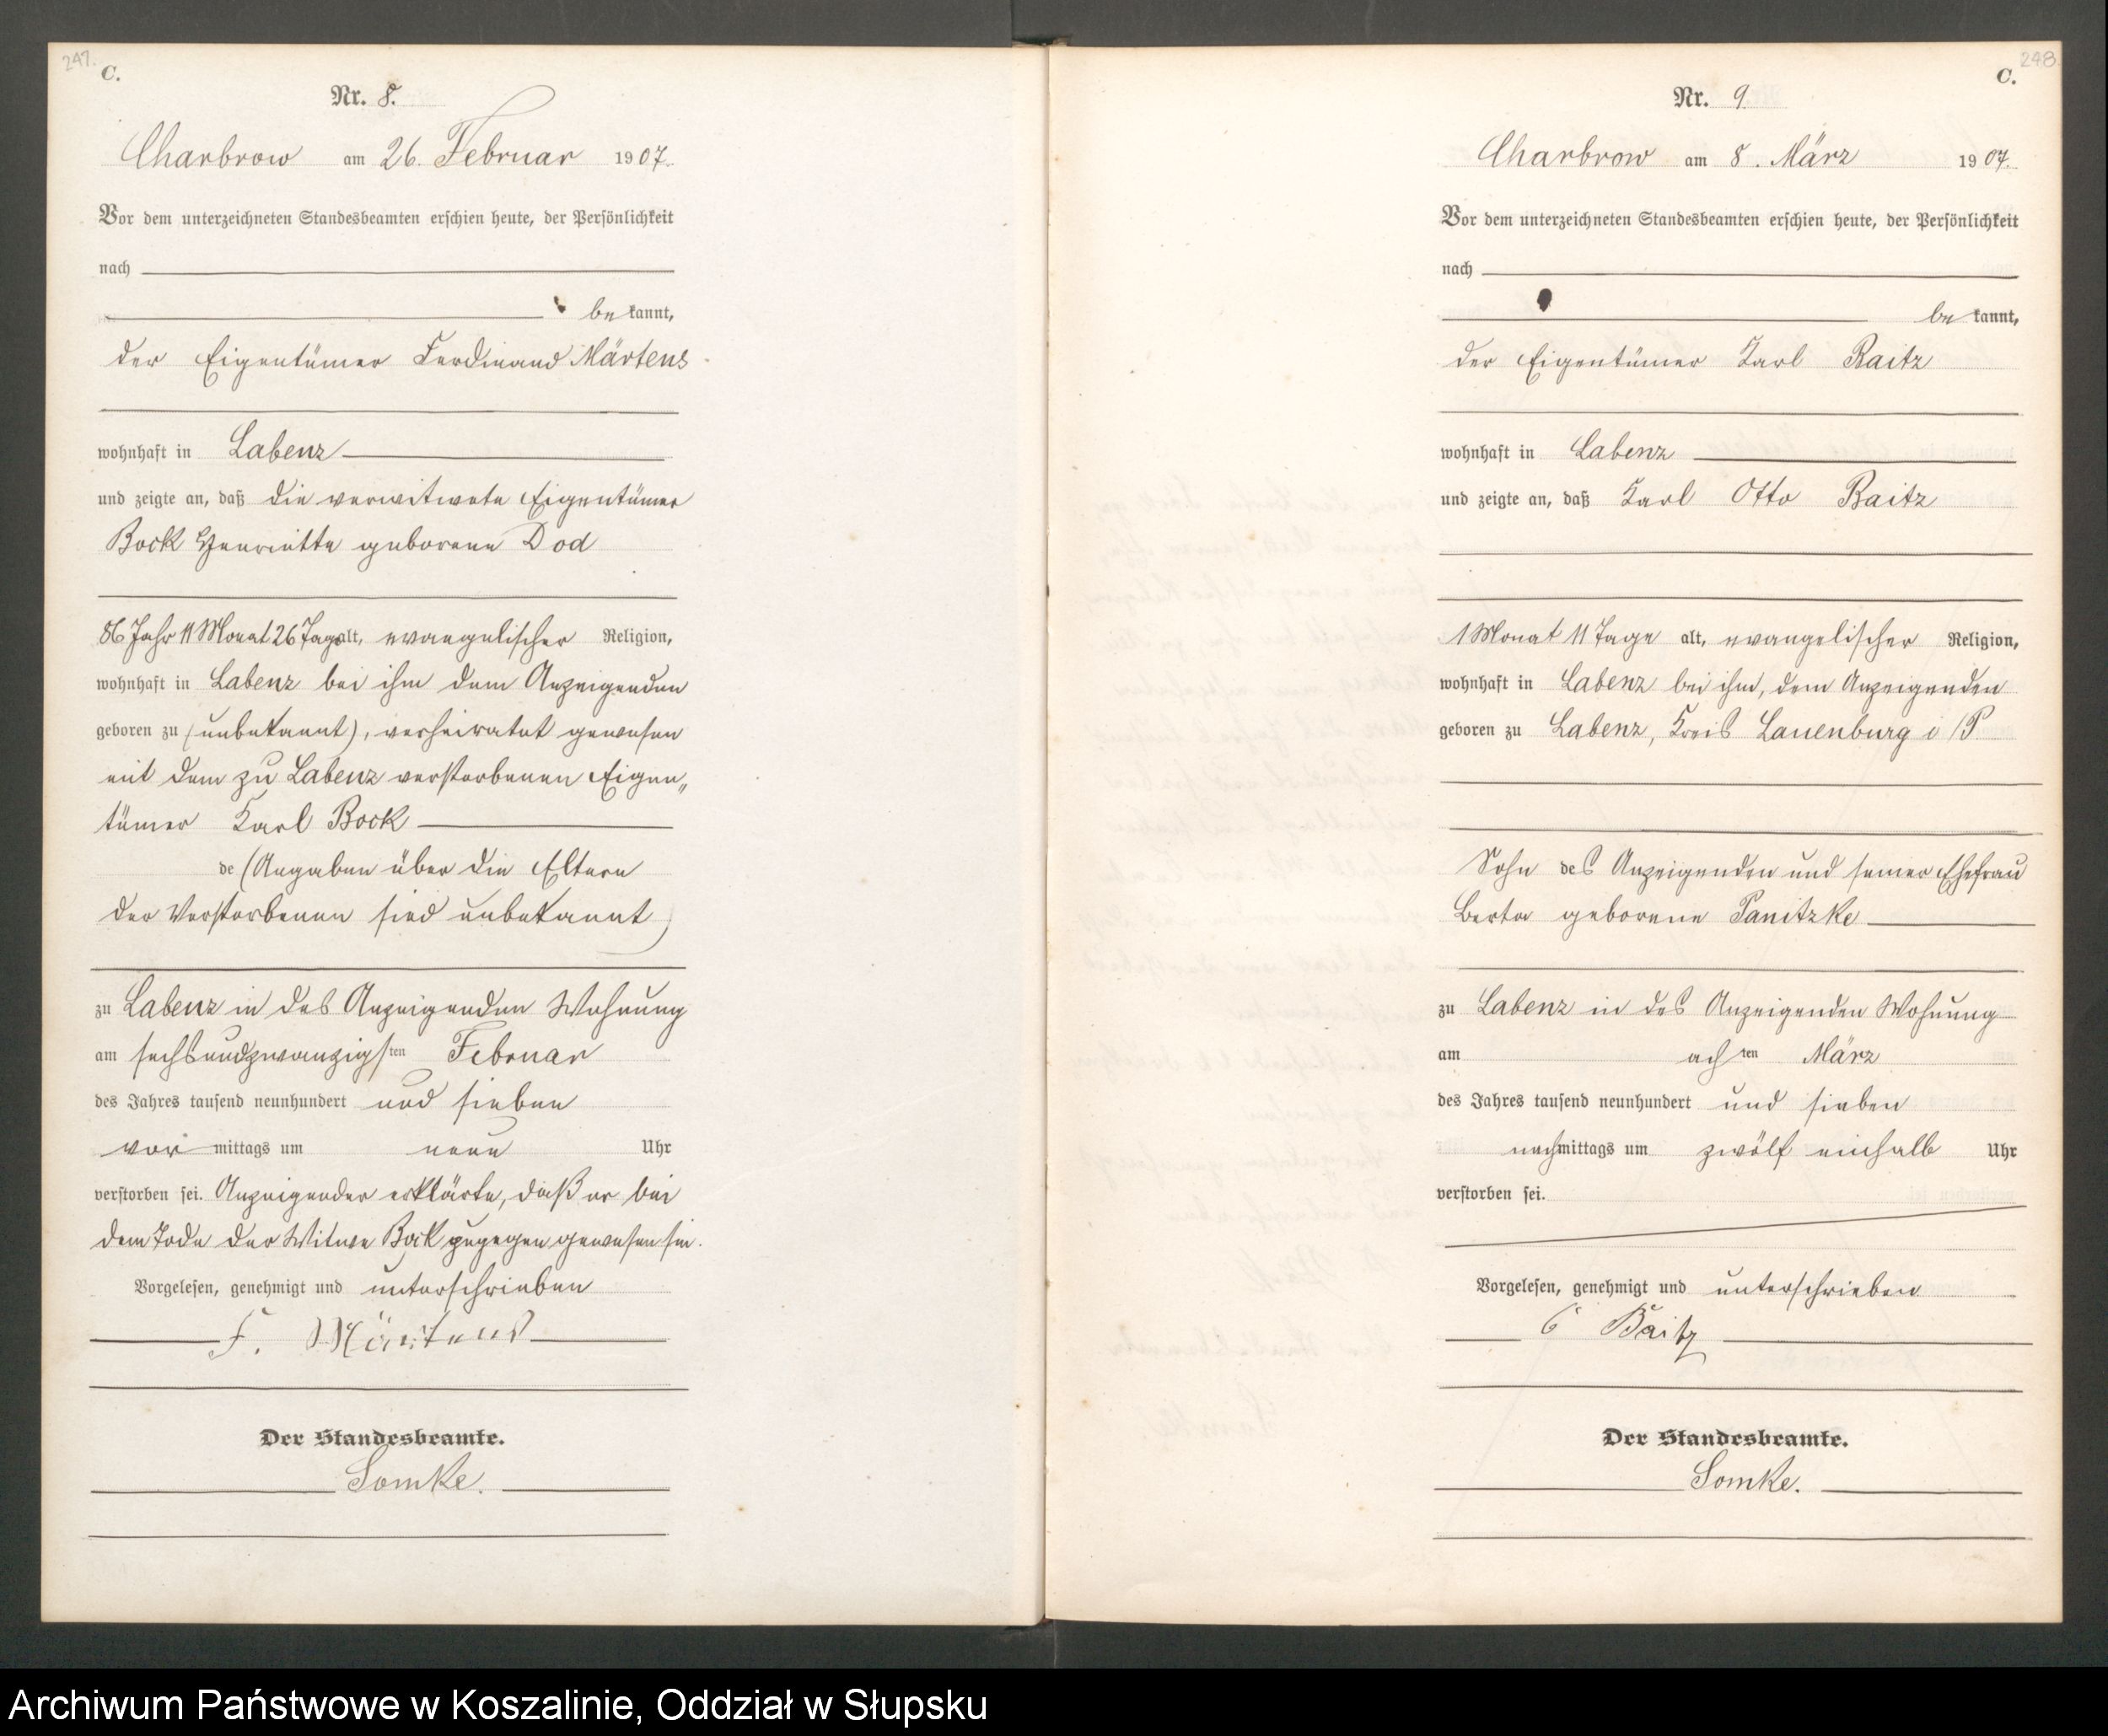 247.
C.
Nr. 8.
Charbrow am 26. Februar 1907.
Vor dem unterzeichneten Standesbeamten erschien heute, der Persönlichkeit
nach
be kannt,
der Eigentümer Ferdinand Märtens
wohnhaft in Labenz
und zeigte an, daß die verwitwete Eigentümer
Bock Henriette geborene Dod
86 Jahr 11 Monat 26 Tage alt, evangelischer Religion,
wohnhaft in Labenz bei ihm dem Anzeigenden
geboren zu (unbekannt), verheiratet gewesen
mit dem zu Labenz verstorbenen Eigen„
tümer Karl Bock
de (Angaben über die Eltern
der Verstorbenen sind unbekannt)
zu Labenz in des Anzeigenden Wohnung
am sechsundzwanzigsten Februar
des Jahres tausend neunhundert und sieben
vor mittags um neun Uhr
verstorben sei. Anzeigender erklärte, daß er bei
dem Tode der Witwe Bock zugegen gewesen sei.
Vorgelesen, genehmigt und unterschrieben
F. Märtens
Der Standesbeamte.
Somke.
248.
C.
Nr. 9
Charbrow am 8. März 1907.
Vor dem unterzeichneten Standesbeamten erschien heute, der Persönlichkeit
nach
be kannt,
der Eigentümer Karl Raitz
wohnhaft in Labenz
und zeigte an, daß Karl Otto Raitz
1 Monat 11 Tage alt, evangelischer Religion,
wohnhaft in Labenz bei ihm, dem Anzeigenden
geboren zu Labenz, Kreis Lauenburg i/P
Sohn des Anzeigenden und seiner Ehefrau
Berta geborene Panitzke
zu Labenz in des Anzeigenden Wohnung
am achten März
des Jahres tausend neunhundert und sieben
nachmittags um zwölf einhalb Uhr
verstorben sei.
Vorgelesen, genehmigt und unterschrieben
C Raitz
Der Standesbeamte.
Somke.
Archiwum Państwowe w Koszalinie, Oddział w Słupsku